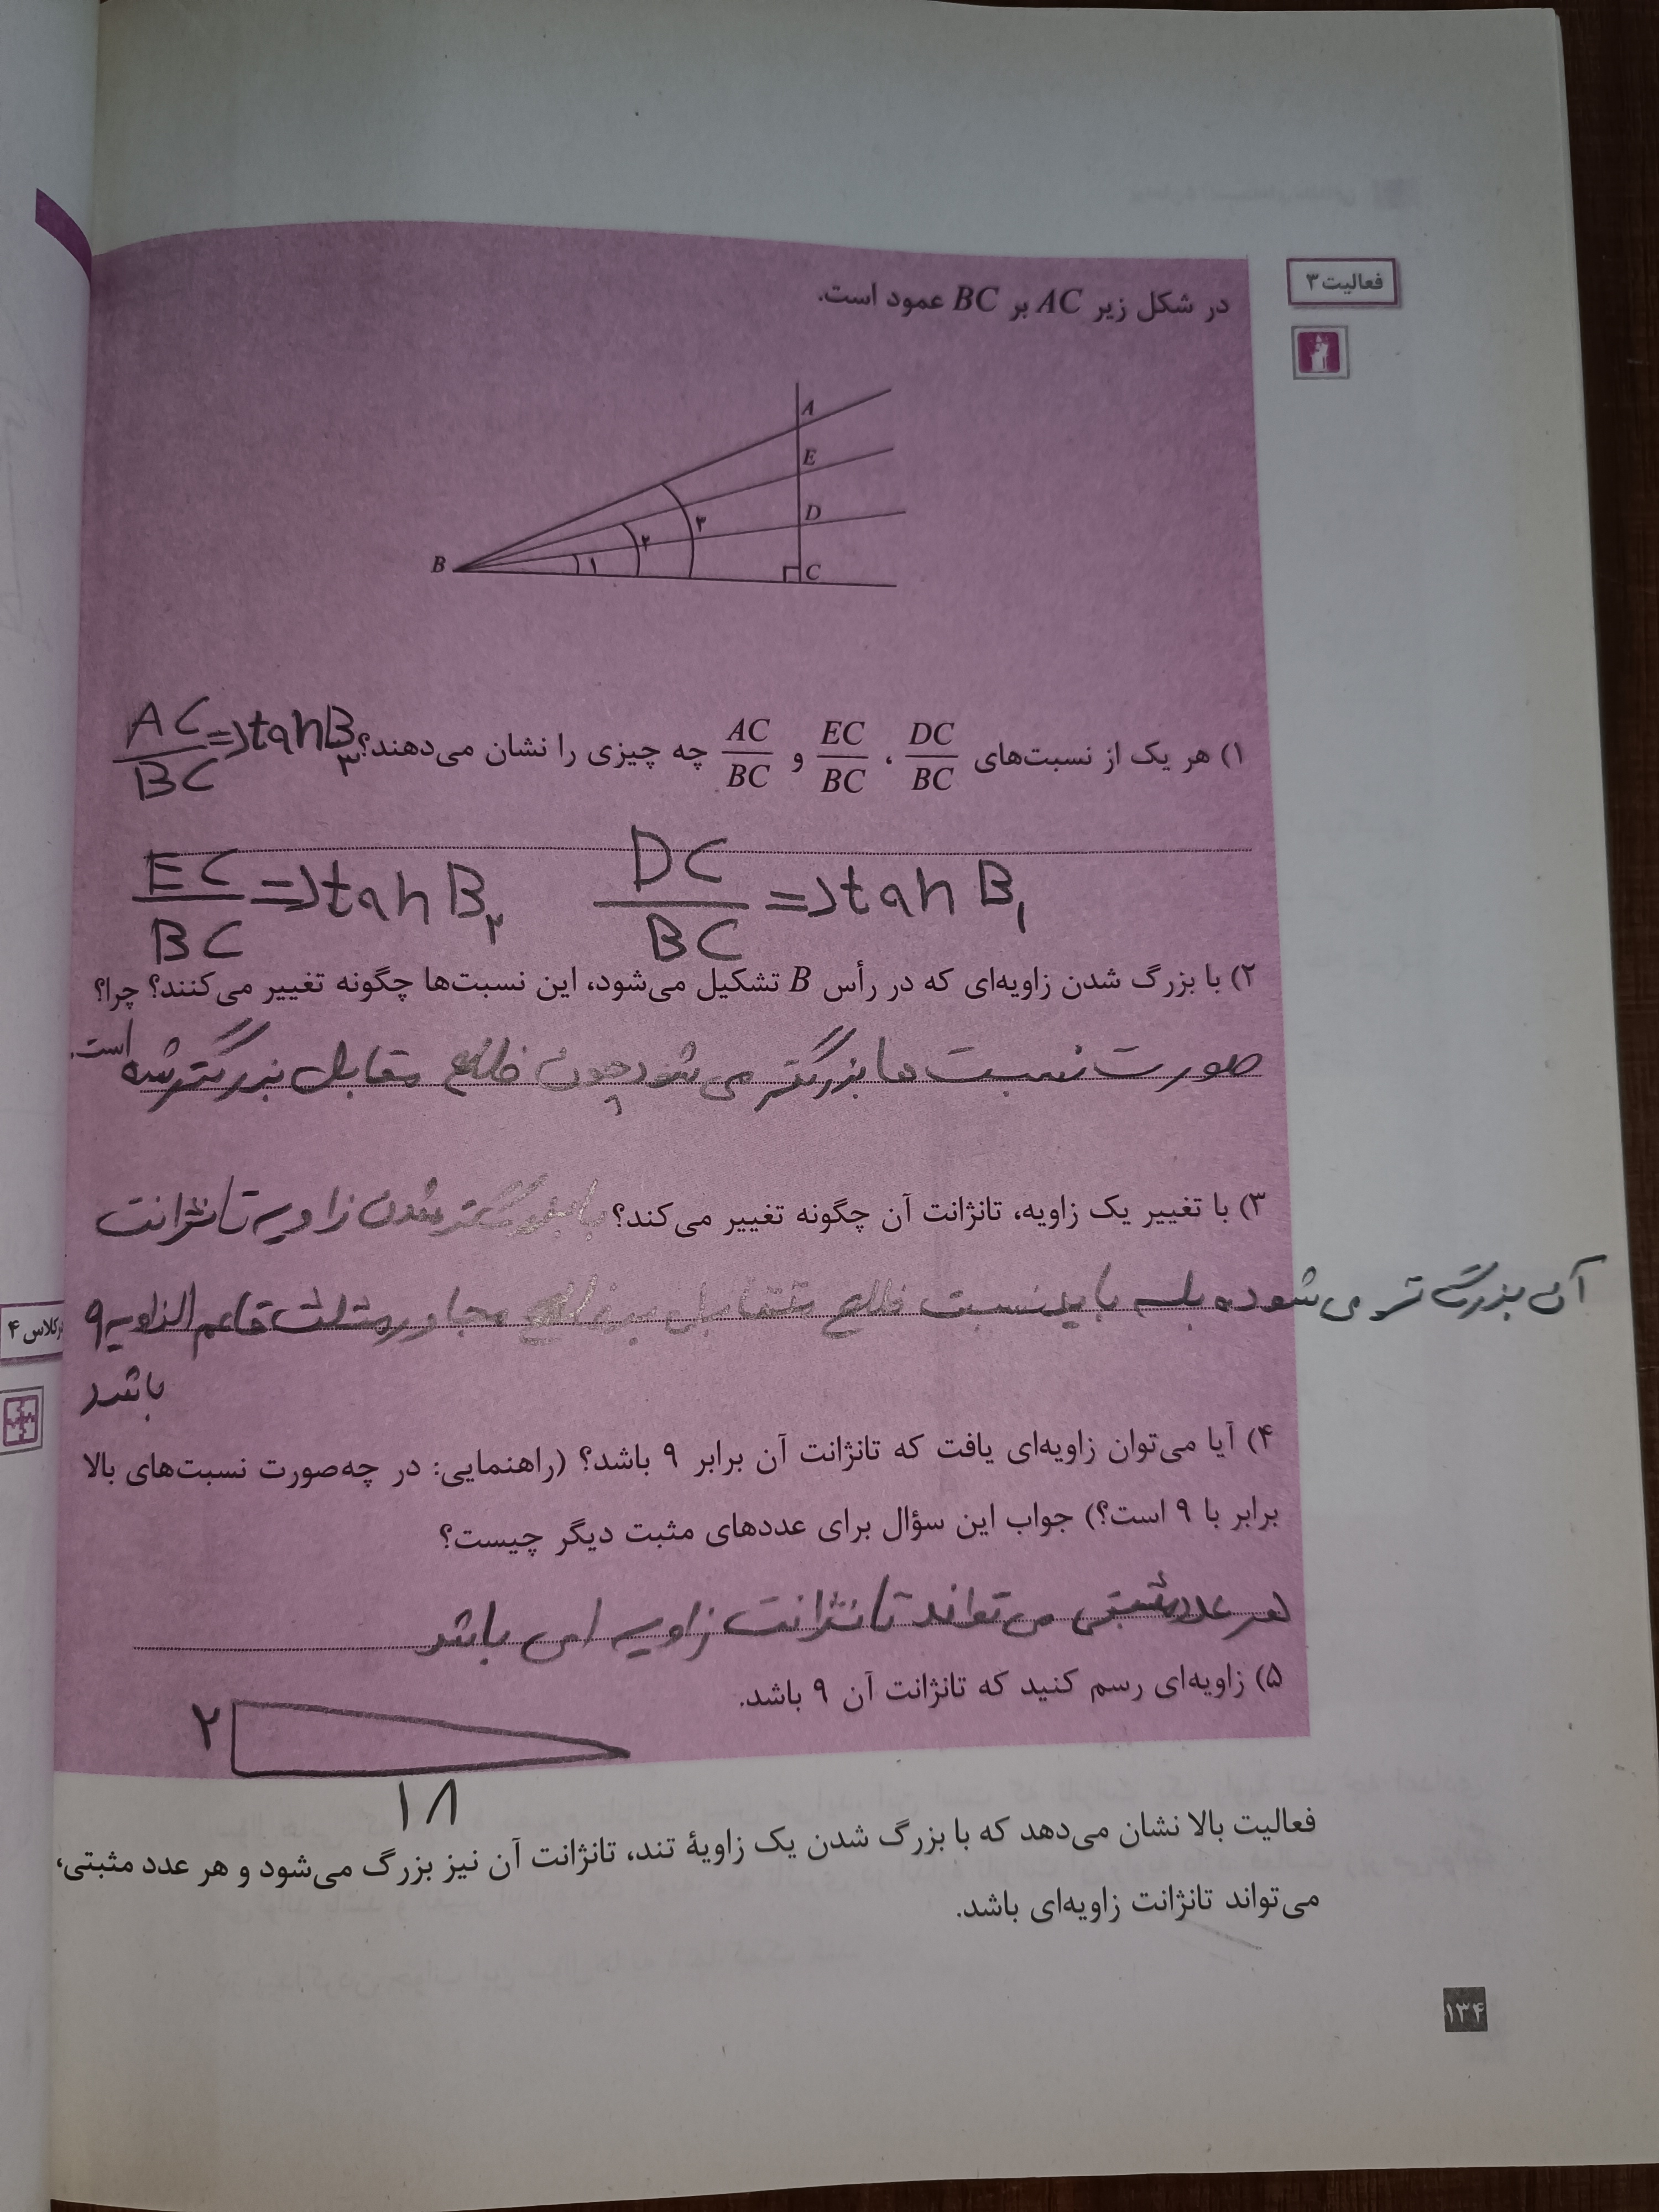 فعالیت ۳
در شکل زیر AC بر BC عمود است.
A
E
D
C
B
۱
۲
۳
۱) هر یک از نسبت‌های DC/BC ، EC/BC و AC/BC چه چیزی را نشان می‌دهند؟ AC/BC => tan B۳
EC/BC => tan B۲ DC/BC => tan B۱
۲) با بزرگ شدن زاویه‌ای که در رأس B تشکیل می‌شود، این نسبت‌ها چگونه تغییر می‌کنند؟ چرا؟
صورت نسبت ها بزرگتر می شود چون ضلع مقابل بزرگتر شده است.
۳) با تغییر یک زاویه، تانژانت آن چگونه تغییر می‌کند؟ با بزرگتر شدن زاویه تانژانت
آن بزرگ تر می شود بله باید نسبت ضلع مقابل به ضلع مجاور مثلث قاعم الزاویه ۹
باشد
۴) آیا می‌توان زاویه‌ای یافت که تانژانت آن برابر ۹ باشد؟ (راهنمایی: در چه‌صورت نسبت‌های بالا
برابر با ۹ است؟) جواب این سؤال برای عددهای مثبت دیگر چیست؟
هر عدد مثبتی می تواند تانژانت زاویه ای باشد
۵) زاویه‌ای رسم کنید که تانژانت آن ۹ باشد.
۲
۱۸
فعالیت بالا نشان می‌دهد که با بزرگ شدن یک زاویهٔ تند، تانژانت آن نیز بزرگ می‌شود و هر عدد مثبتی،
می‌تواند تانژانت زاویه‌ای باشد.
۱۳۴
رکلاس ۴